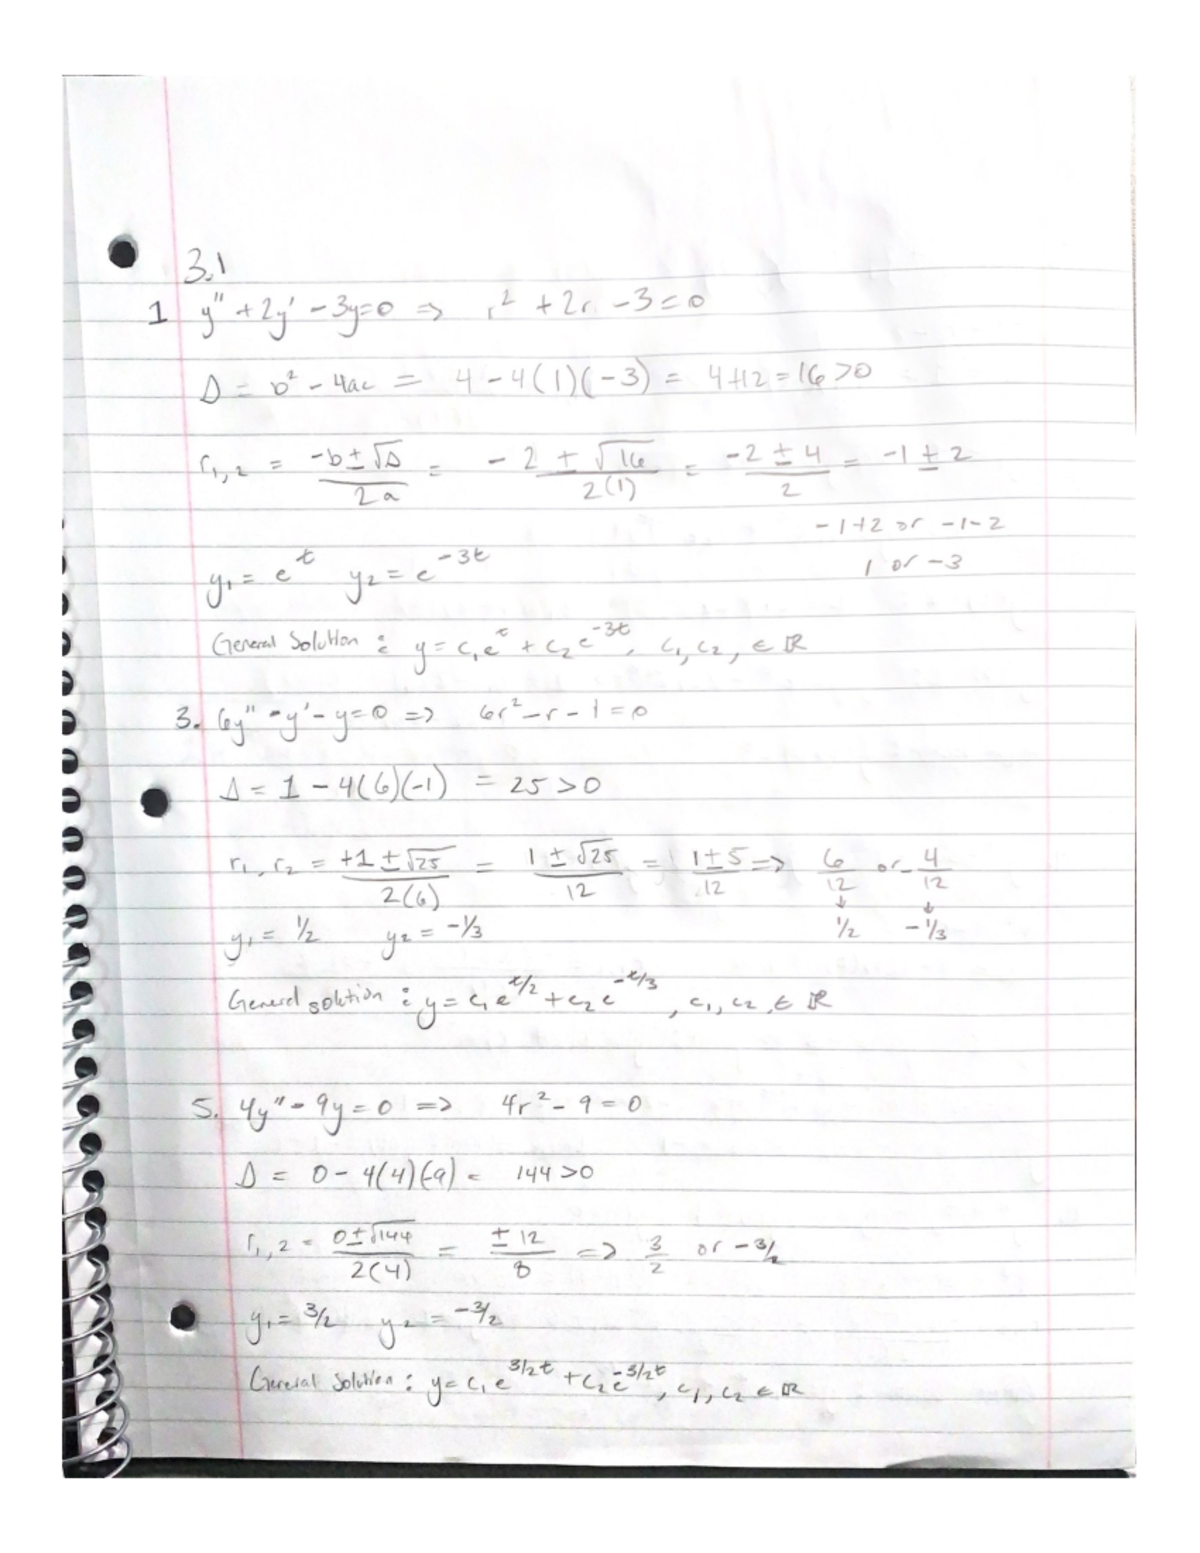 3.1
1 y'' + 2y' - 3y = 0 ⇒ r² + 2r - 3 = 0
Δ = b² - 4ac = 4 - 4(1)(-3) = 4+12 = 16 > 0
r₁,₂ = (-b ± √Δ)/(2a) = (-2 ± √16)/(2(1)) = (-2 ± 4)/2 = -1 ± 2
-1+2 or -1-2
y₁ = e^t y₂ = e^(-3t) 1 or -3
General Solution : y = c₁e^t + c₂e^(-3t), c₁, c₂, ∈ ℝ
3. 6y'' - y' - y = 0 ⇒ 6r² - r - 1 = 0
Δ = 1 - 4(6)(-1) = 25 > 0
r₁, r₂ = (+1 ± √25)/(2(6)) = (1 ± √25)/12 = (1 ± 5)/12 ⇒ 6/12 or -4/12
↓ ↓
y₁ = 1/2 y₂ = -1/3 1/2 -1/3
General solution : y = c₁e^(t/2) + c₂e^(-t/3), c₁, c₂, ∈ ℝ
5. 4y'' - 9y = 0 ⇒ 4r² - 9 = 0
Δ = 0 - 4(4)(-9) = 144 > 0
r₁,₂ = (0 ± √144)/(2(4)) = (± 12)/8 ⇒ 3/2 or -3/2
y₁ = 3/2 y₂ = -3/2
General Solution : y = c₁e^(3/2t) + c₂e^(-3/2t), c₁, c₂ ∈ ℝ